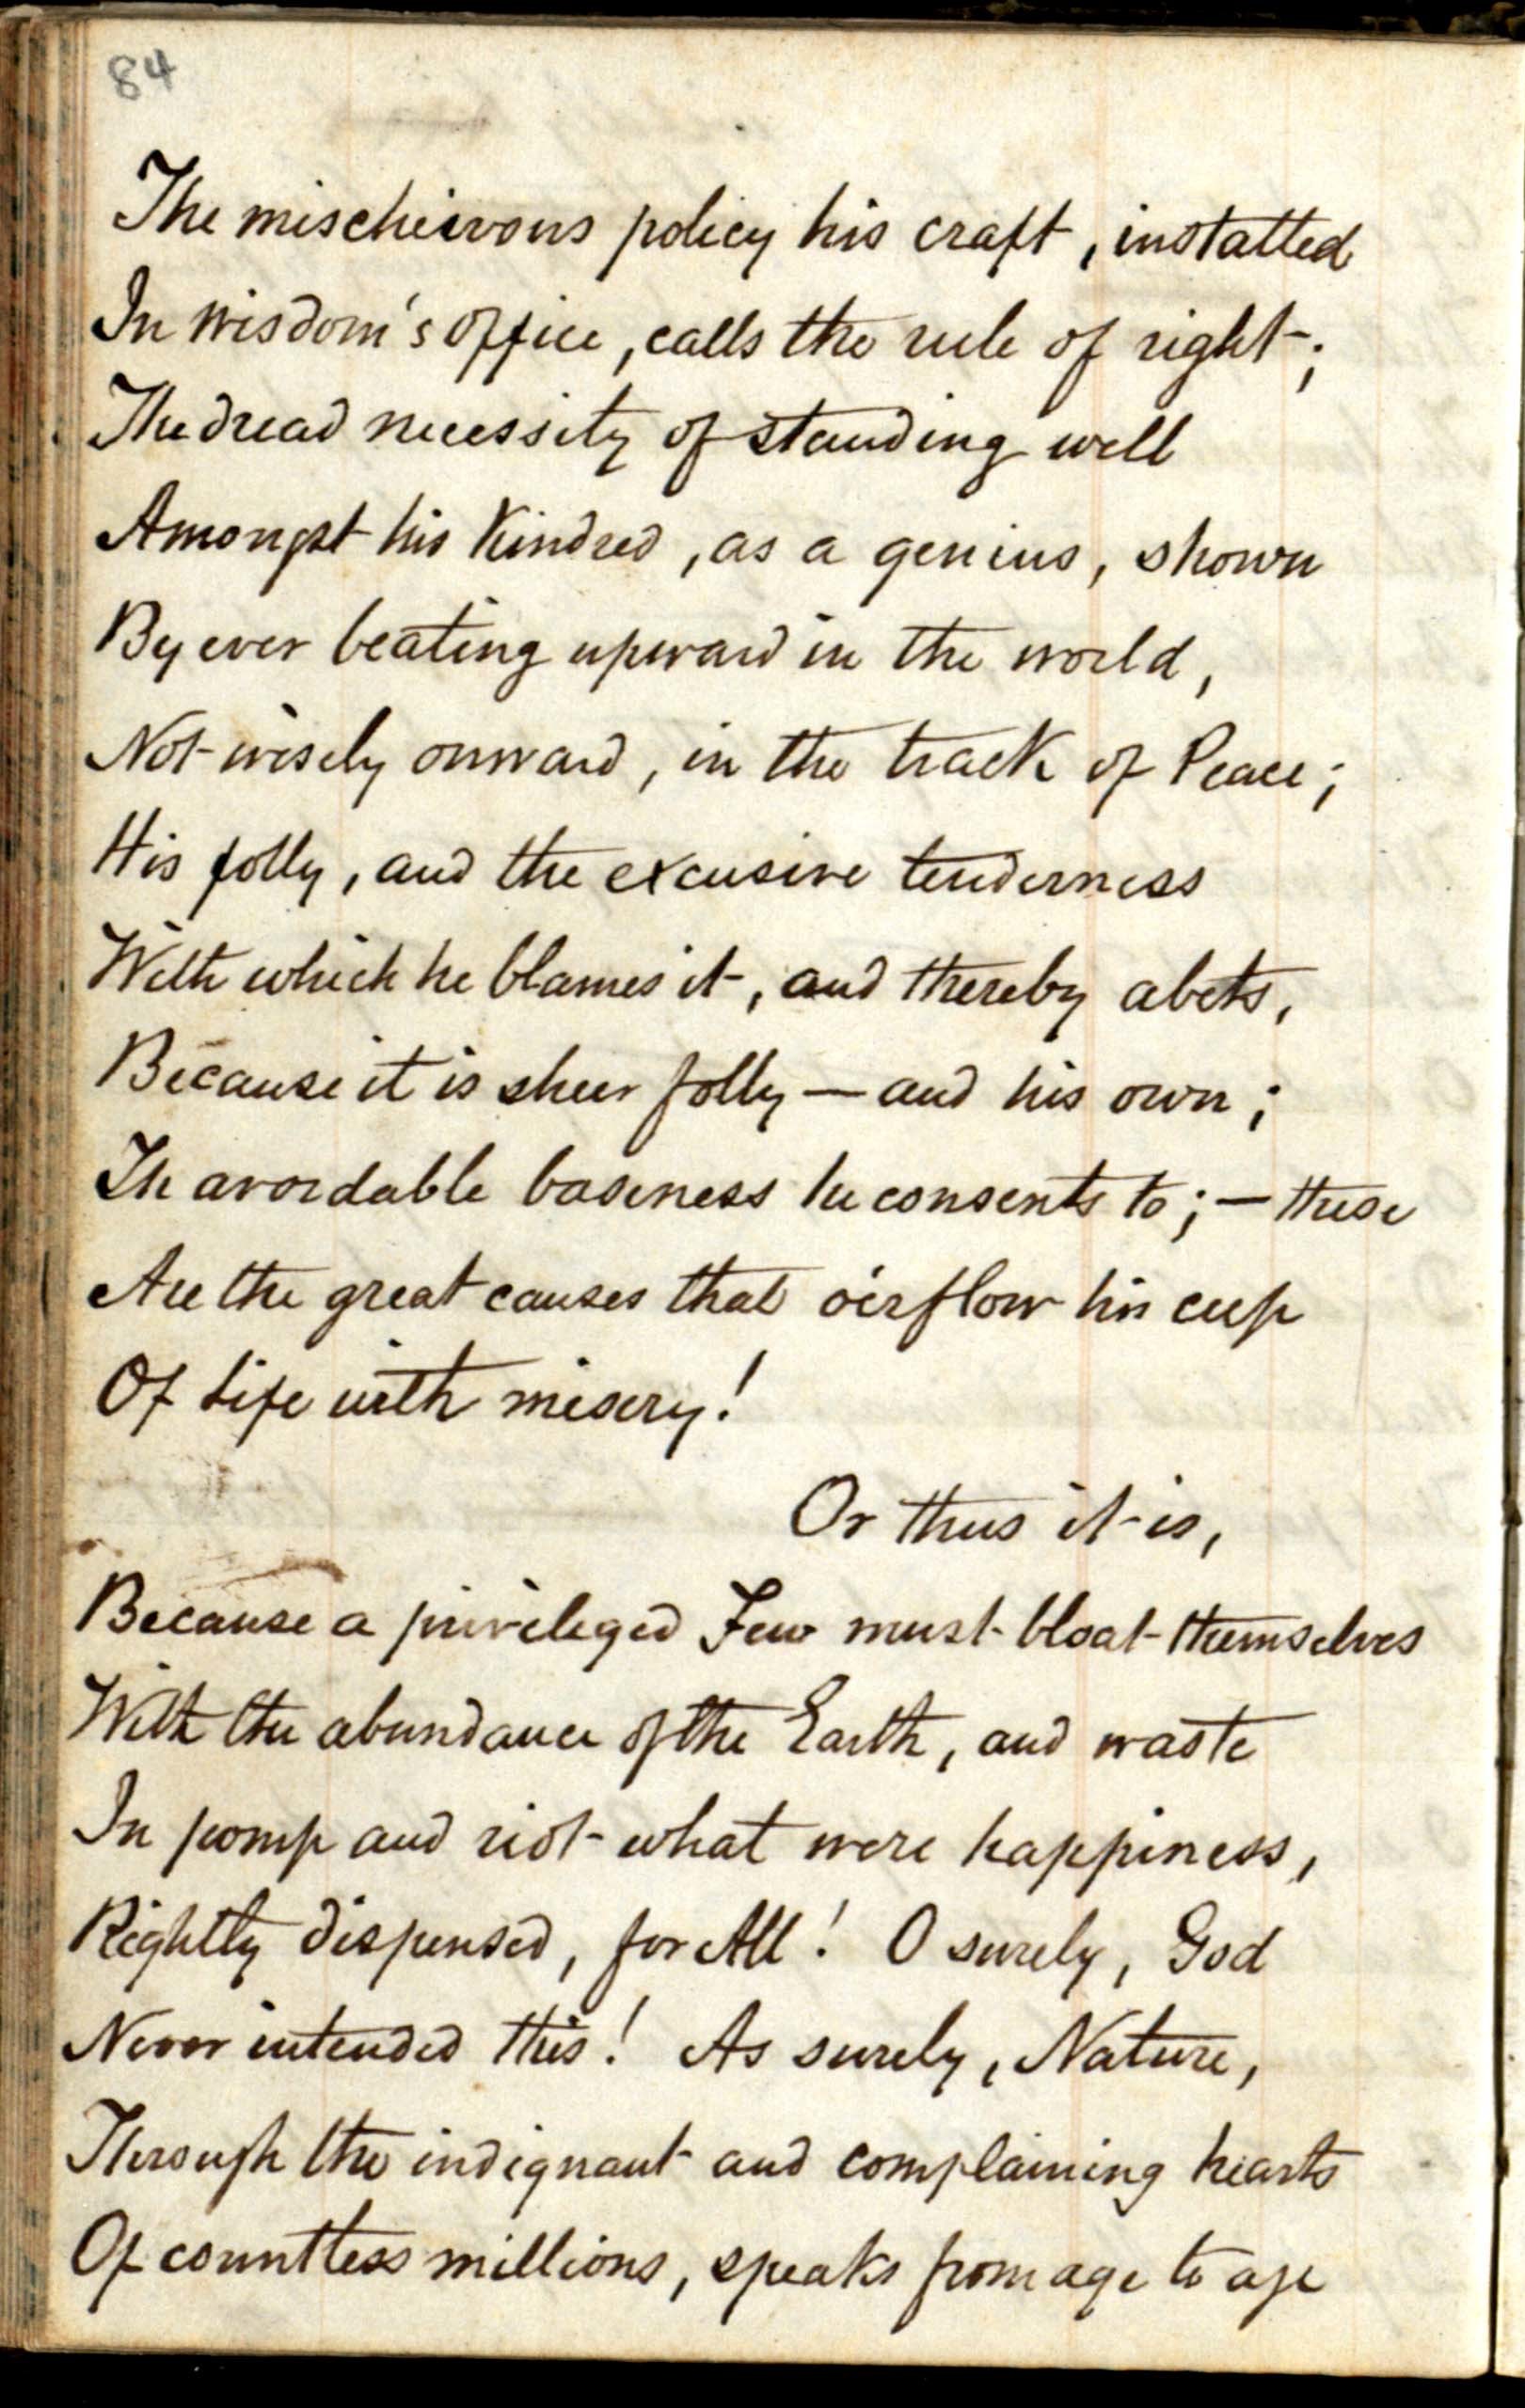 84
The mischeivous policy his craft, installed
In wisdom's office, calls the rule of right;
The dread necessity of standing well
Amongst his Kindred, as a genius, shown
By ever beating upward in the world,
Not wisely onward, in the track of Peace;
His folly, and the excusive tenderness
With which he blames it, and thereby abets,
Because it is sheer folly — and his own;
Th avoidable baseness he consents to; — these
Are the great causes that o'erflow his cup
Of Life with misery!
Or thus it is,
Because a privileged Few must bloat themselves
With the abundance of the Earth, and waste
In pomp and riot what were happiness,
Rightly dispensed, for All! O surely, God
Never intended this! As surely, Nature,
Through the indignant and complaining hearts
Of countless millions, speaks from age to age